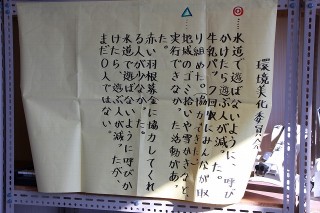 環境美化委員会
◎……水道で遊ばないように、呼び
かけたら遊ぶ人が減った。
牛乳パック回収にみんなが取
り組めた。協力できた。
△ 地域のゴミ拾いや雪かきなど
実行できなかった活動があっ
た。
赤い羽根募金に協力してくれ
る人が少なかった。
水道で遊ばないように呼びか
けたら、遊ぶ人が減ったが、
まだ0人ではない。